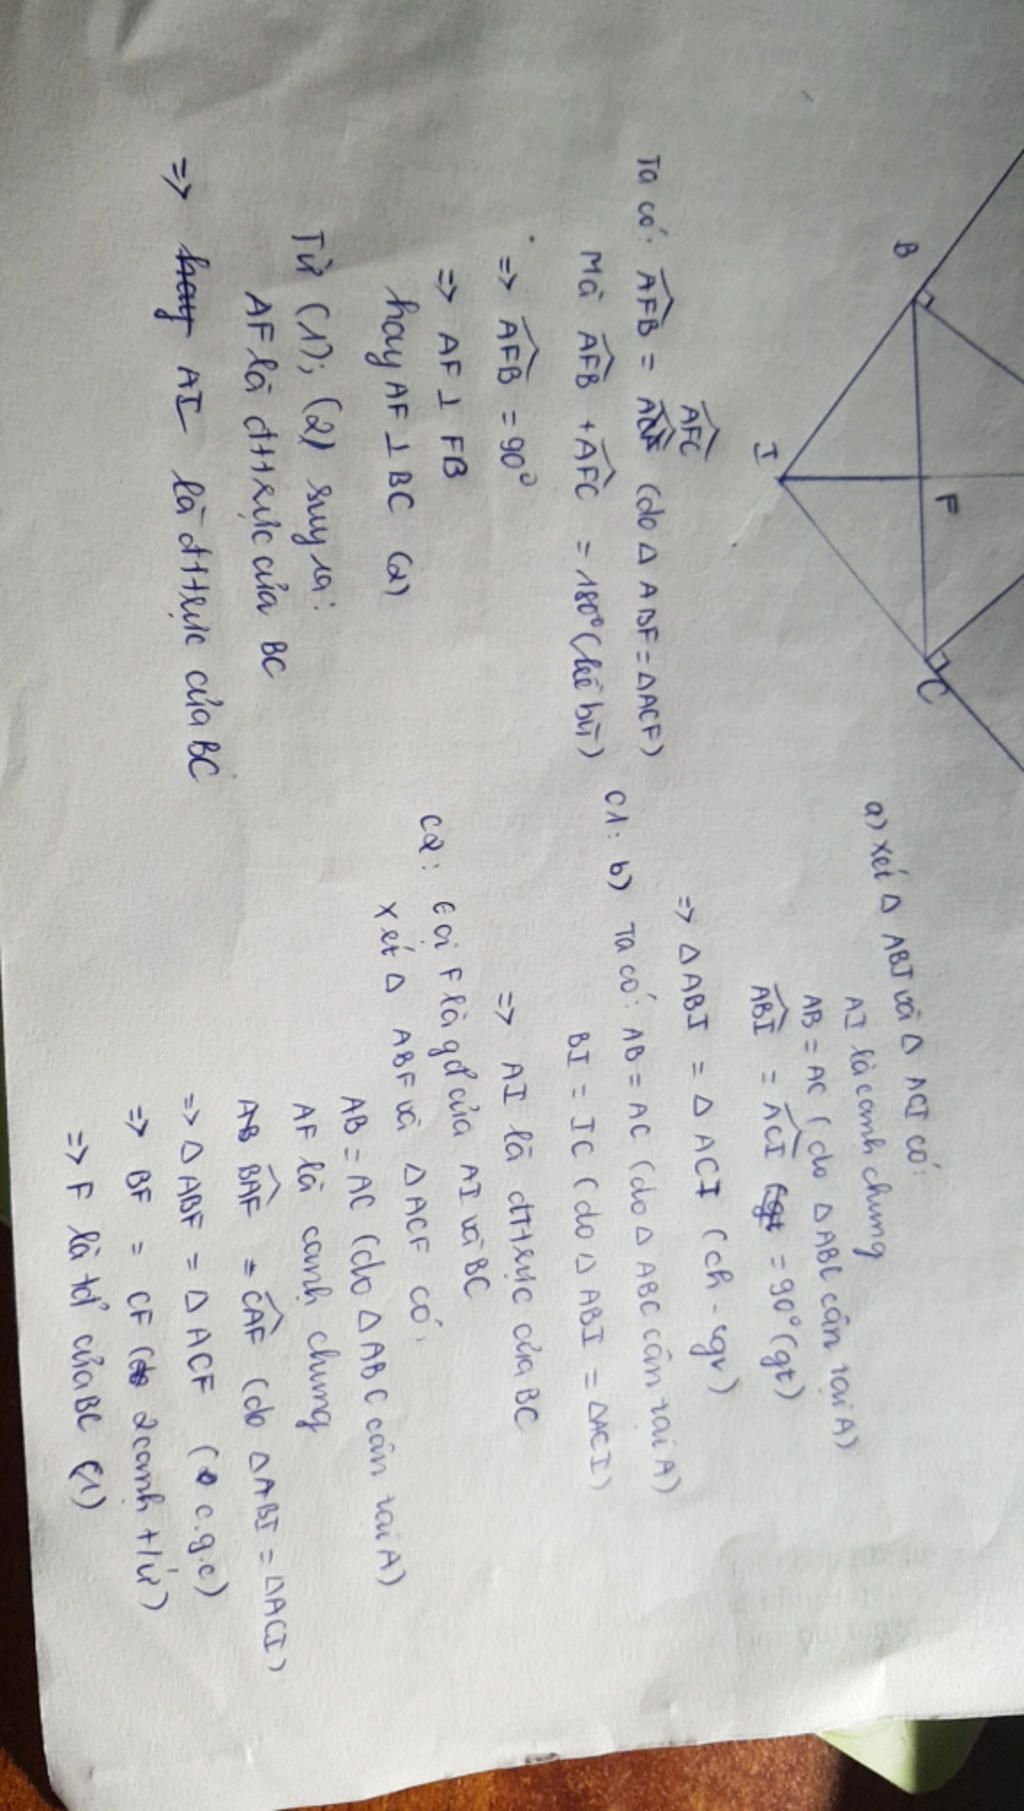 B
I
F
C
a) xét Δ ABI và Δ ACI có:
AI là cạnh chung
AB = AC (do Δ ABC cân tại A)
ABI = ACI = 90° (gt)
=> Δ ABI = Δ ACI (ch - cgv)
C1: b) Ta có: AB = AC (do Δ ABC cân tại A)
BI = IC (do Δ ABI = ΔACI)
=> AI là đttrực của BC
C2: Gọi F là gđ của AI và BC
xét Δ ABF và Δ ACF có:
AB = AC (do Δ ABC cân tại A)
AF là cạnh chung
BAF = CAF (do Δ ABI = ΔACI)
=> Δ ABF = Δ ACF (c.g.c)
=> BF = CF (2 cạnh t/ứ)
=> F là tđ của BC (1)
Ta có: AFB = AFC (do Δ ABF = ΔACF)
Mà AFB + AFC = 180° (kề bù)
=> AFB = 90°
=> AF ⊥ FB
hay AF ⊥ BC (2)
Từ (1); (2) suy ra:
AF là đttrực của BC
=> AI là đttrực của BC